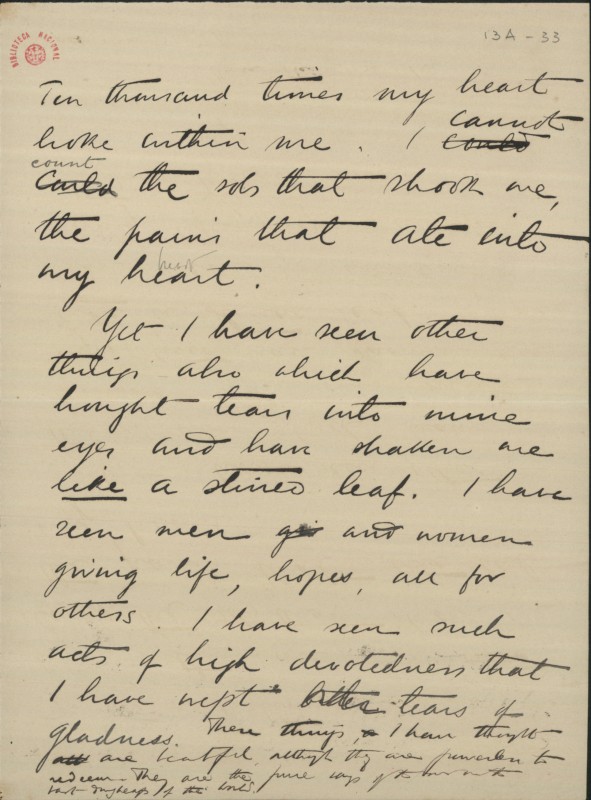 BIBLIOTECA NACIONAL
13A - 33
Ten thousand times my heart
broke within me. I cannot could
count
could the sobs that shook me,
the pains that ate into
my heart.
heart
Yet I have seen other
things also which have
brought tears into mine
eyes and have shaken me
like a stirred leaf. I have
seen men and women
giving life, hopes, all for
others. I have seen such
acts of high devotedness that
I have wept bitter tears of
gladness. These things, I have thought
are beautiful although they are powerless to
redeem. They are the pure rays of the sun on the
vast dungheaps of the world.